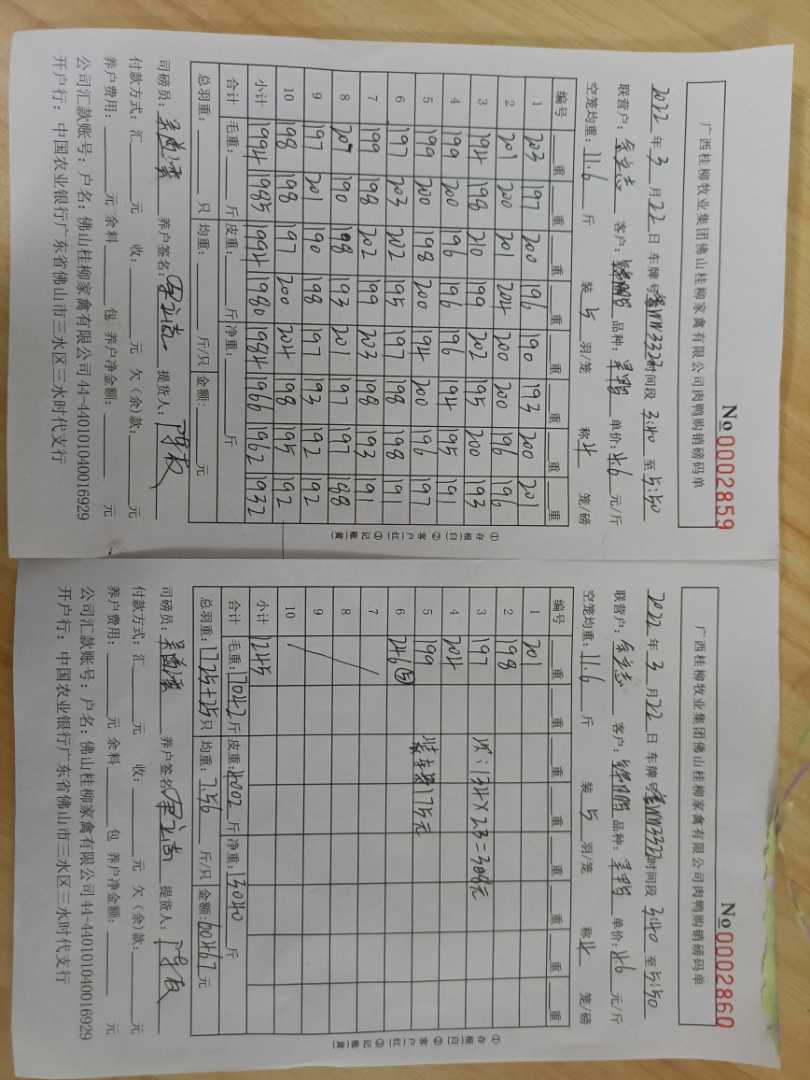 No 0002859
广西桂柳牧业集团佛山桂柳家禽有限公司肉鸭购销磅码单
2022 年 3 月 22 日 车牌号 时间段 3:40 至 5:50
联营户: 客户: 品种: 单价: 4.6 元/斤
空笼均重: 11.6 斤 装 5 羽/笼 称 4 笼/磅
编号 重 重 重 重 重 重 重 重
1 203 197 200 196 190 193 200 201
2 201 200 201 204 200 200 196 196
3 194 198 210 199 202 195 200 193
4 199 200 196 196 196 194 195 191
5 199 200 198 200 194 200 196 197
6 197 203 202 195 197 198 198 191
7 199 198 202 199 203 198 193 191
8 207 190 198 193 201 197 197 188
9 197 201 190 198 197 193 192 192
10 198 198 197 200 204 198 195 192
小计 1994 1985 1994 1980 1984 1966 1962 1932
合计 毛重: 斤 皮重: 斤 净重: 斤
总羽重: 只 均重: 斤/只 金额: 元
①存根(白) ②客户(红) ③记账(黄)
司磅员: 养户签名: 提货人:
付款方式: 汇 元 收: 元 欠(余)款: 元
养户费用: 元 余料 包 养户净金额: 元
公司汇款账号: 户名: 佛山桂柳家禽有限公司 44-440101040016929
开户行: 中国农业银行广东省佛山市三水区三水时代支行
No 0002860
广西桂柳牧业集团佛山桂柳家禽有限公司肉鸭购销磅码单
2022 年 3 月 22 日 车牌号 时间段 3:40 至 5:50
联营户: 客户: 品种: 单价: 4.6 元/斤
空笼均重: 11.6 斤 装 5 羽/笼 称 4 笼/磅
编号 重 重 重 重 重 重 重 重
1 201
2 198
3 197 134×2.3=308元
4 204
5 199 装车费175元
6 246⑤
7
8
9
10
小计 1245
合计 毛重: 17042 斤 皮重: 4002 斤 净重: 13040 斤
总羽重: 1725+25 只 均重: 7.56 斤/只 金额: 60467 元
①存根(白) ②客户(红) ③记账(黄)
司磅员: 养户签名: 提货人:
付款方式: 汇 元 收: 元 欠(余)款: 元
养户费用: 元 余料 包 养户净金额: 元
公司汇款账号: 户名: 佛山桂柳家禽有限公司 44-440101040016929
开户行: 中国农业银行广东省佛山市三水区三水时代支行